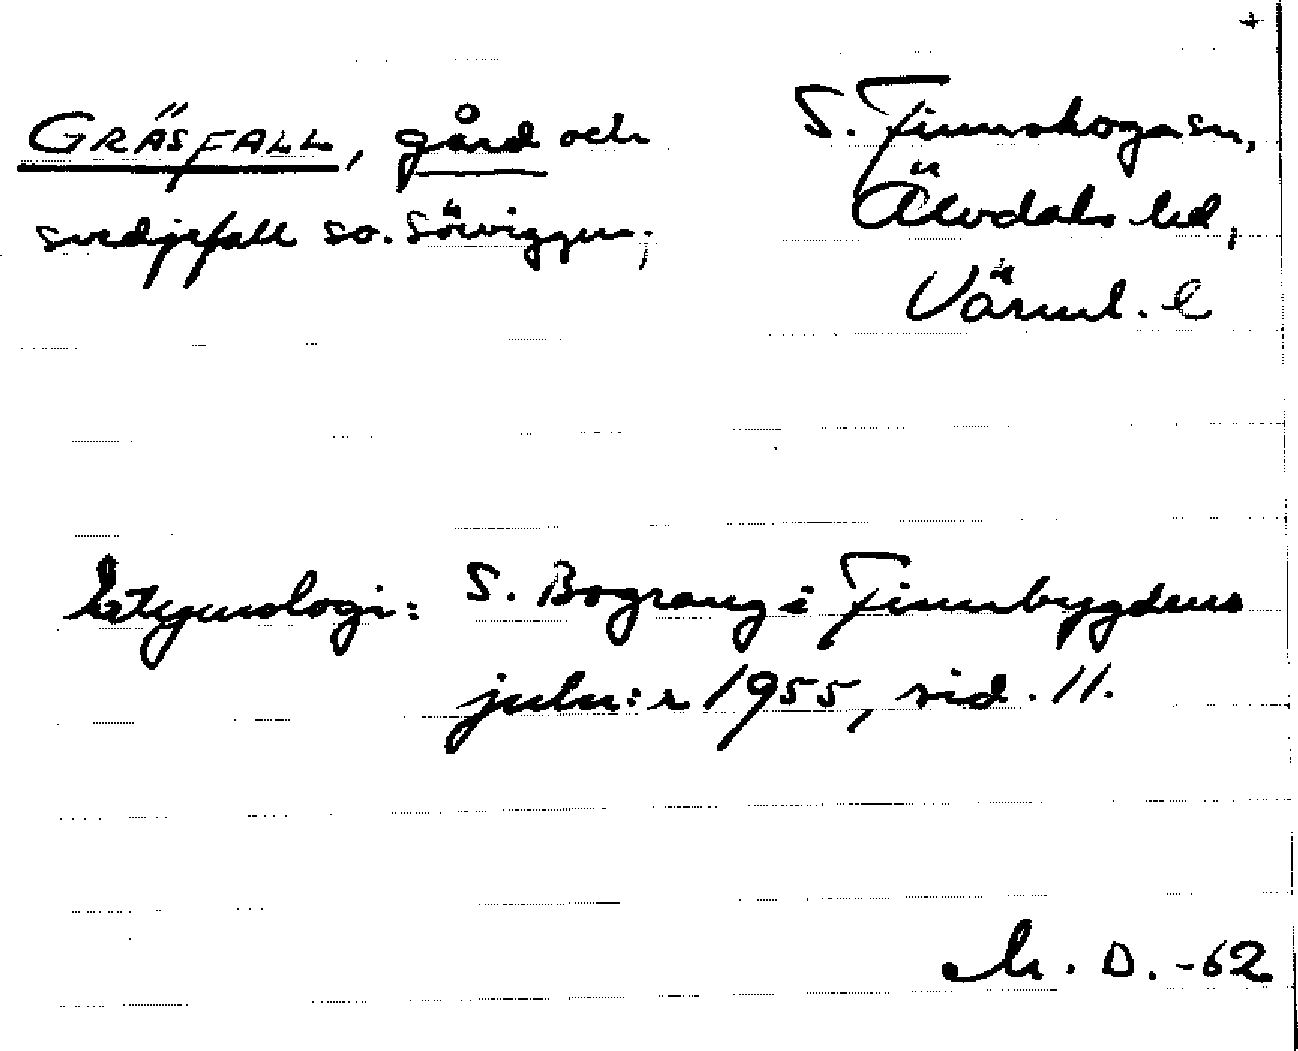 GRÄSFALL, gård och
svedjefall so. Sörviggen;
S. Finnskoga sn,
Älvdals hd,
Värml. l
Etymologi: S. Bograng i Finnbygdens
julnr: 1955, sid. 11.
M. D. -62